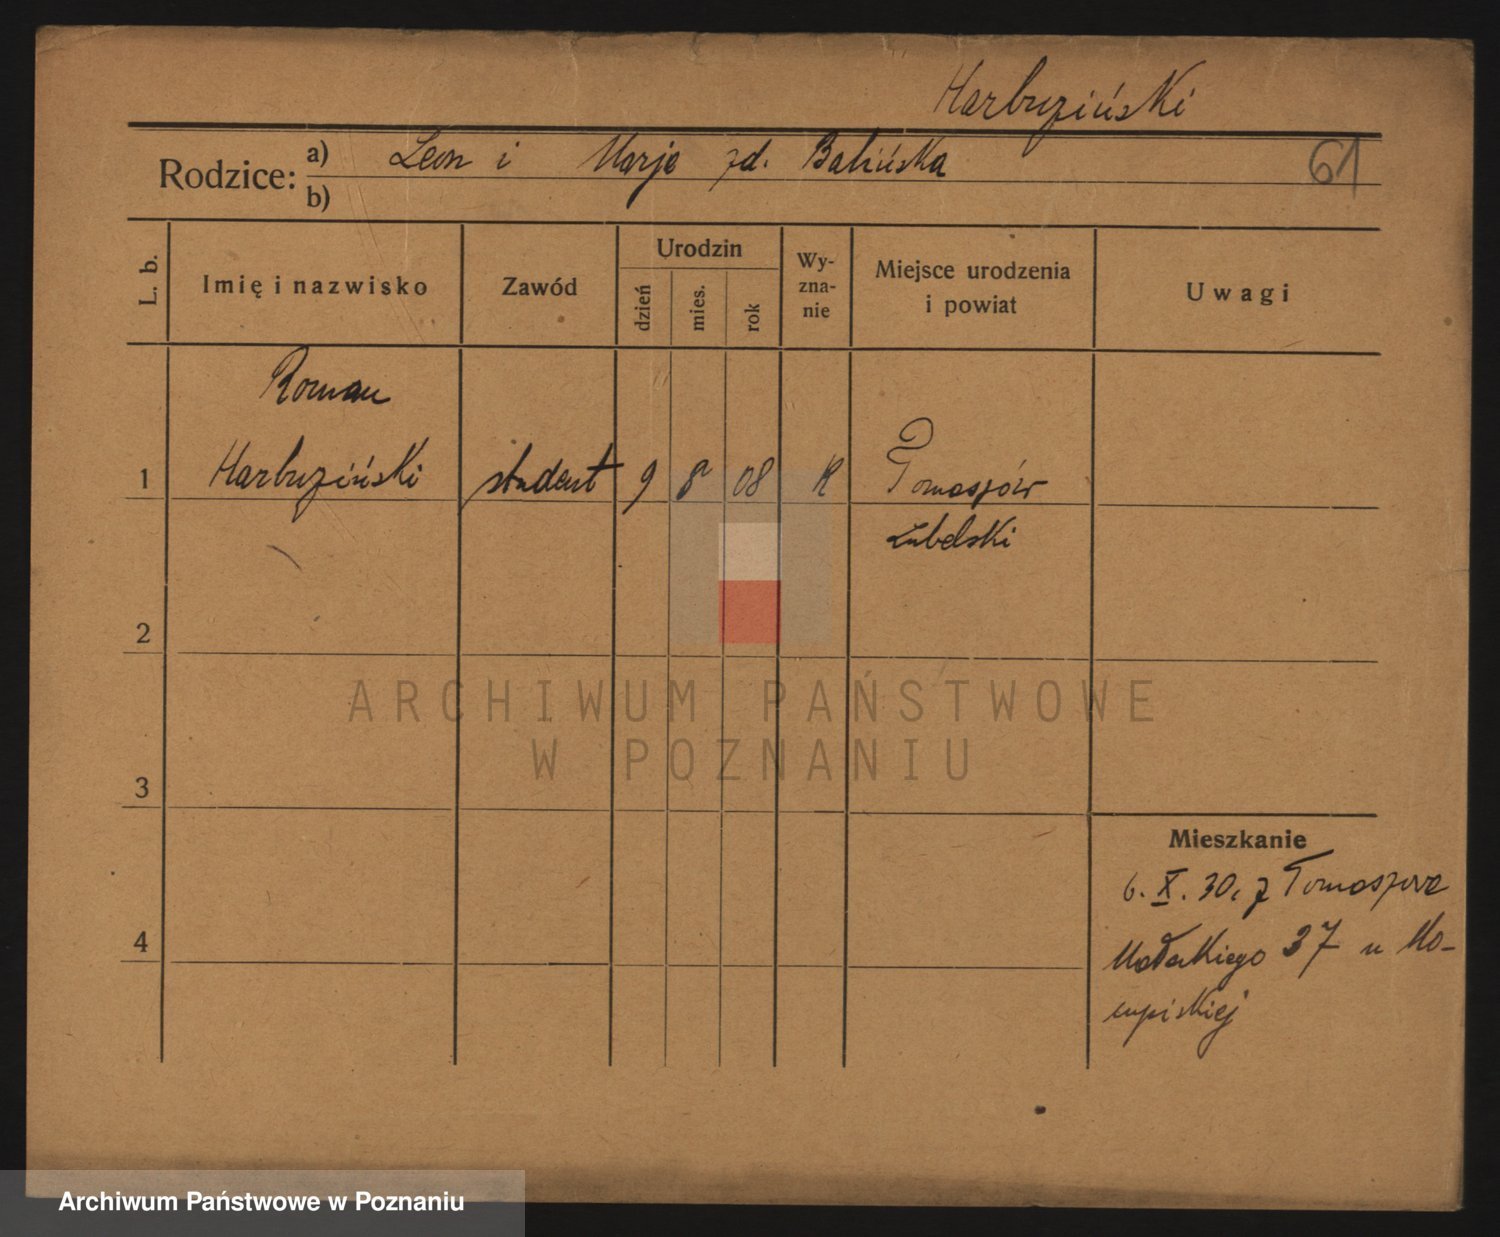 Harbuziński
Rodzice: a) Leon i Marja zd. Balińska
61
b)
L. b.
Imię i nazwisko
Zawód
Urodzin
dzień
mies.
rok
Wy-
zna-
nie
Miejsce urodzenia
i powiat
Uwagi
Roman
1 Harbuziński student 9 8 08 K Tomaszów
Lubelski
2
ARCHIWUM PAŃSTWOWE
W POZNANIU
3
Mieszkanie
6. X. 30. z Tomaszowa
4
Małeckiego 37 u
Archiwum Państwowe w Poznaniu